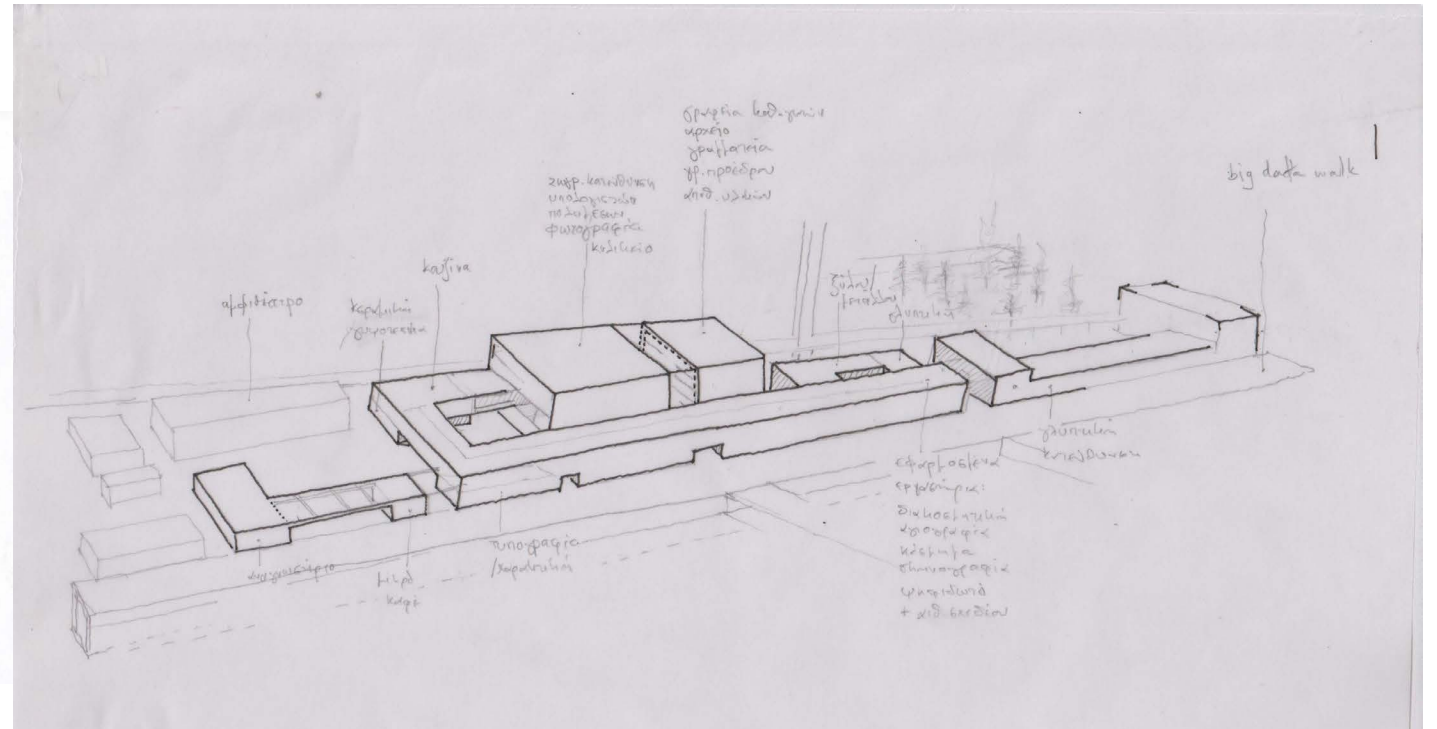 γραφεία καθ.γητών
αρχείο
γραμματεία
γρ. προέδρου
αποθ. υλικών
big data walk
ζωγρ. κατεύθυνση
υπολογιστών
πολυμέσων
φωτογραφία
κυλικείο
κουζίνα
αμφιθέατρο
κεραμική
γυψοτεχνία
ξύλου/
μετάλλου
γλυπτική
γλυπτική
κατεύθυνση
εφαρμοσμένα
εργαστήρια:
διακοσμητική
αγιογραφία
κόσμημα
σκηνογραφία
ψηφιδωτό
+ αιθ. σχεδίου
τυπογραφία
/χαρακτική
μικρό
καφέ